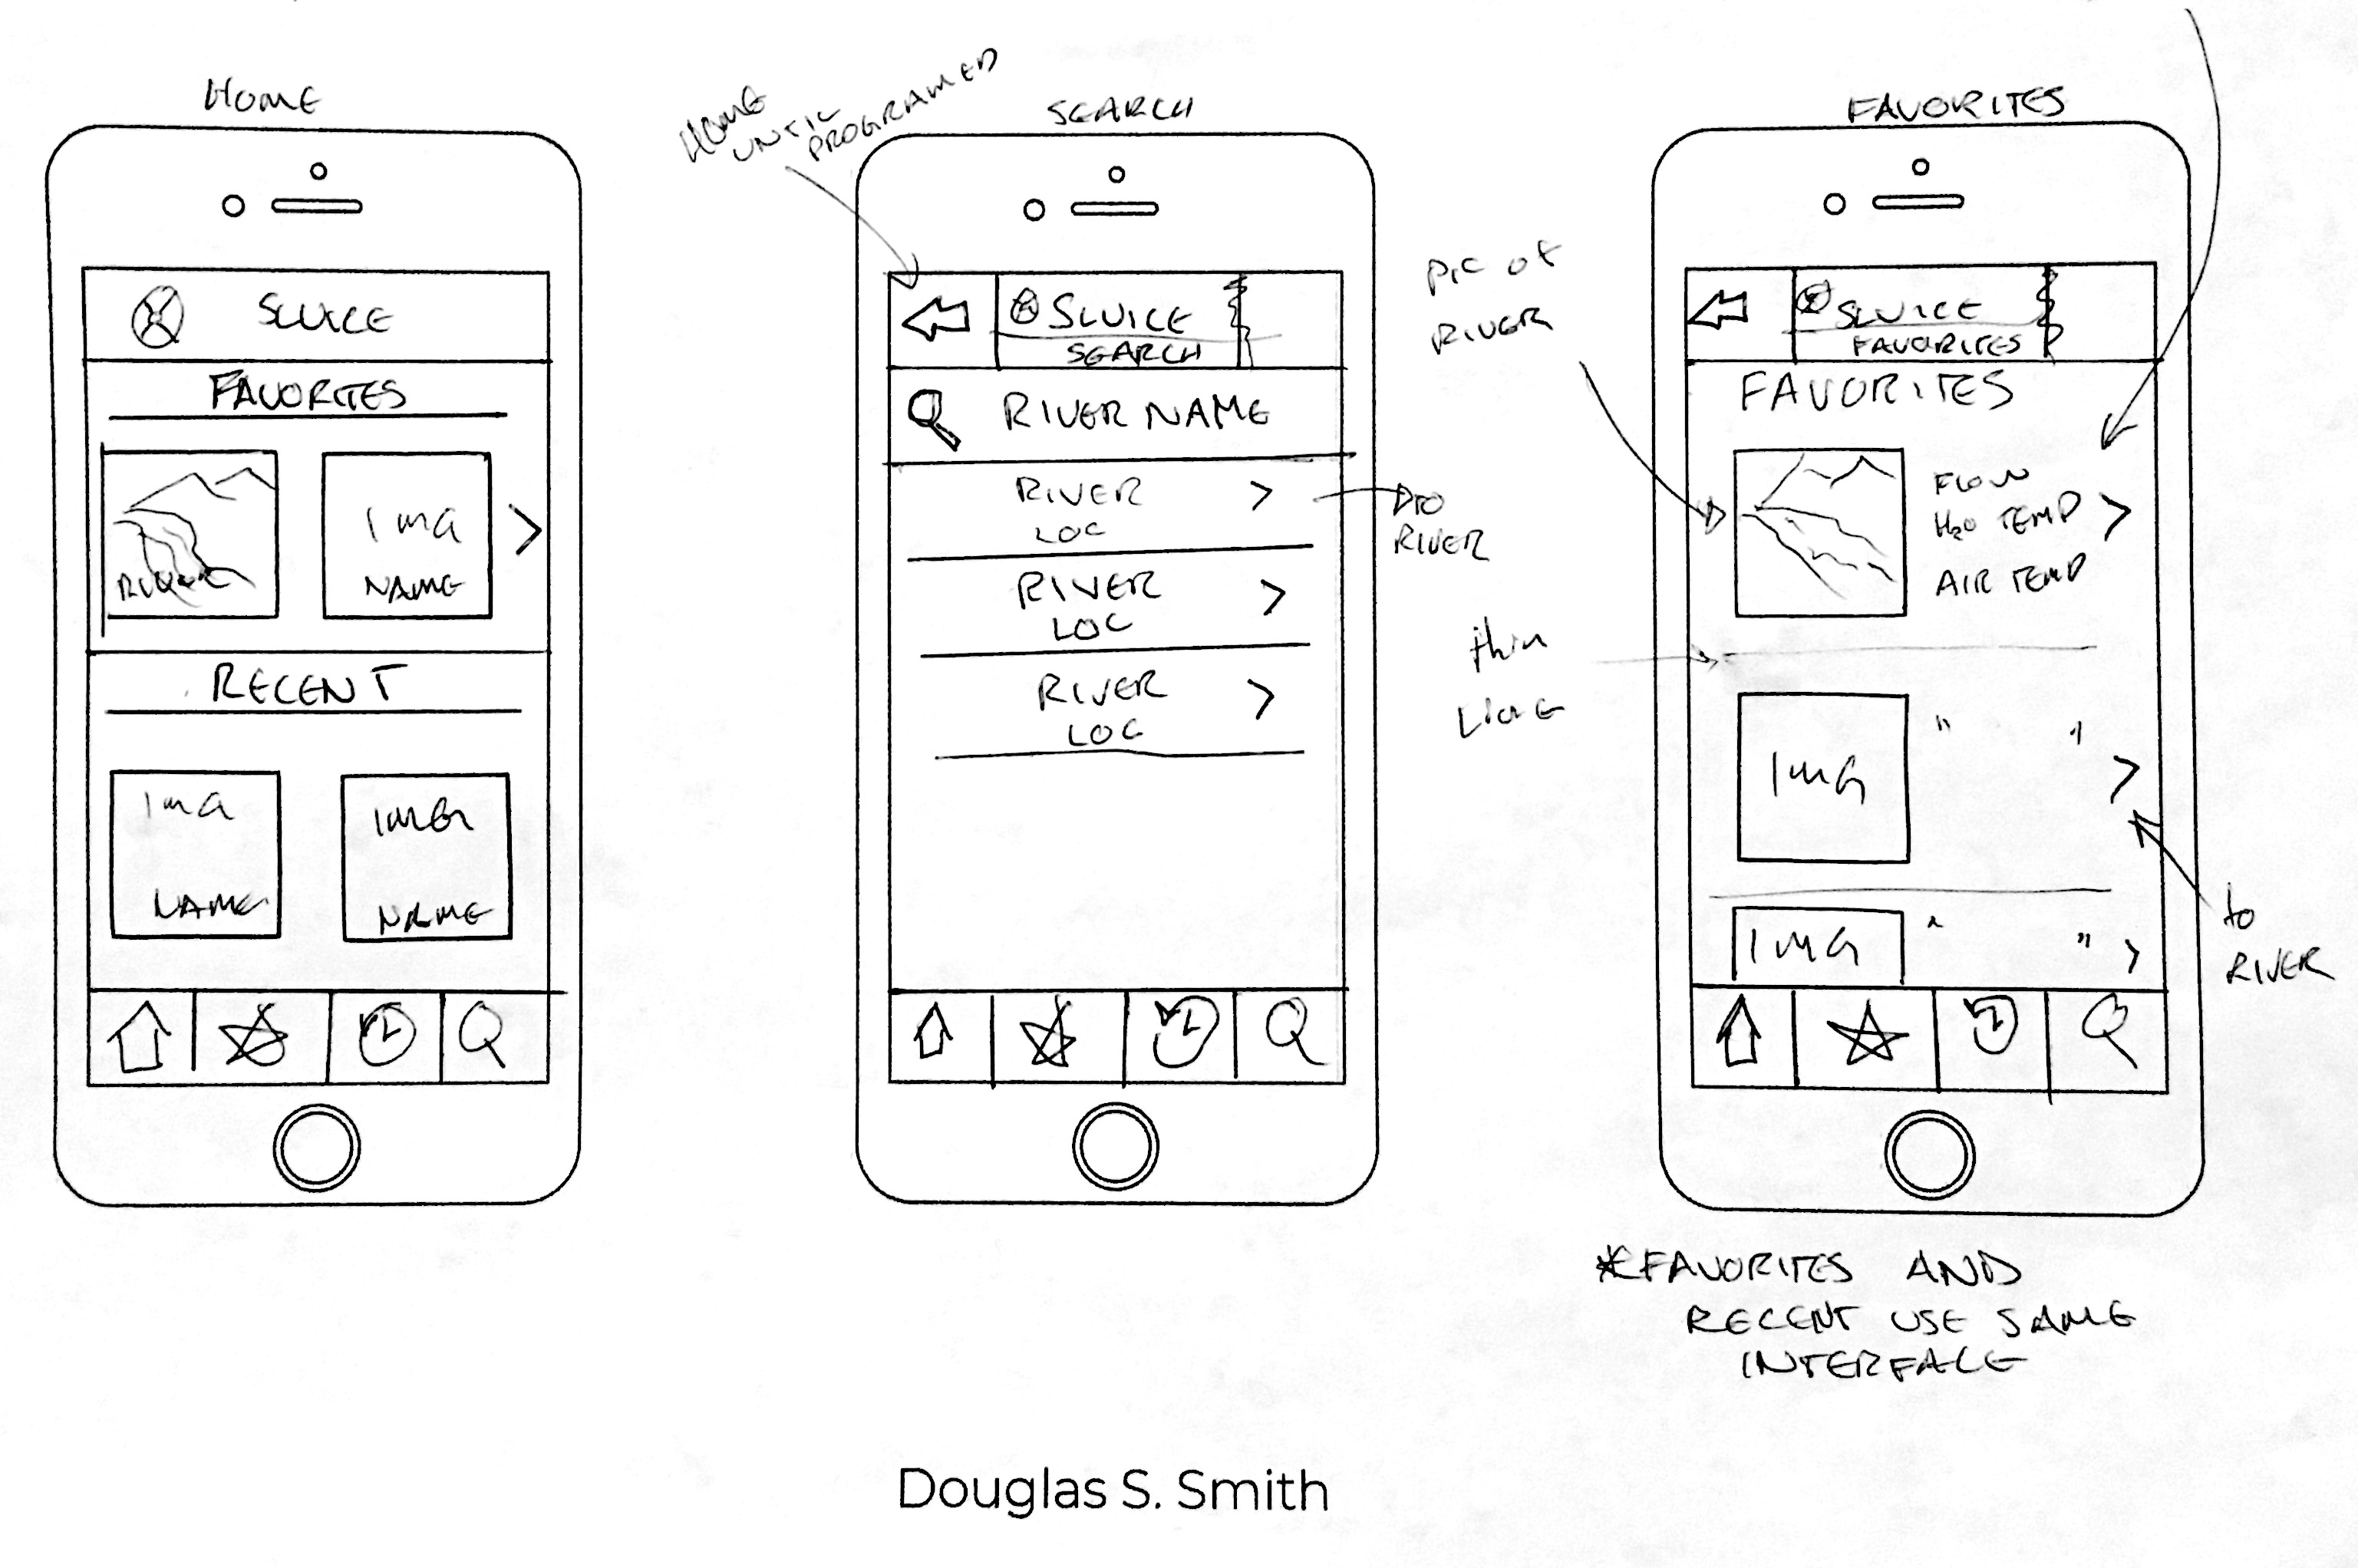 HOME
SLUICE
FAVORITES
RIVER
IMG
NAME
RECENT
IMG
NAME
IMG
NAME
HOME
UNTIL
PROGRAMED
SEARCH
SLUICE
SEARCH
RIVER NAME
RIVER
LOC
TO
RIVER
RIVER
LOC
RIVER
LOC
FAVORITES
PIC OF
RIVER
SLUICE
FAVORITES
FAVORITES
FLOW
H₂O TEMP
AIR TEMP
thin
LINE
IMG
" "
IMG
" "
to
RIVER
*FAVORITES AND
RECENT USE SAME
INTERFACE
Douglas S. Smith